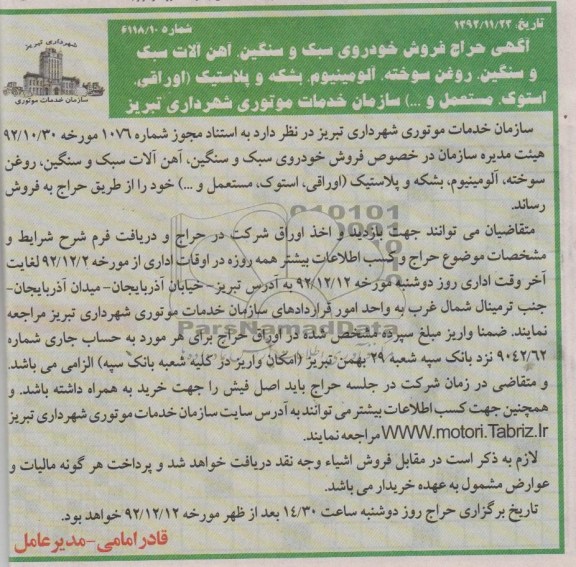 تاریخ: ۱۳۹۲/۱۱/۲۳
شماره ۶۱۱۸/۱۰
شهرداری تبریز
سازمان خدمات موتوری
آگهی حراج فروش خودروی سبک و سنگین، آهن آلات سبک
و سنگین، روغن سوخته، آلومینیوم، بشکه و پلاستیک (اوراقی،
استوک، مستعمل و ...) سازمان خدمات موتوری شهرداری تبریز
سازمان خدمات موتوری شهرداری تبریز در نظر دارد به استناد مجوز شماره ۱۰۷۶ مورخه ۹۲/۱۰/۳۰
هیئت مدیره سازمان در خصوص فروش خودروی سبک و سنگین، آهن آلات سبک و سنگین، روغن
سوخته، آلومینیوم، بشکه و پلاستیک (اوراقی، استوک، مستعمل و ...) خود را از طریق حراج به فروش
رساند.
متقاضیان می توانند جهت بازدید و اخذ اوراق شرکت در حراج و دریافت فرم شرح شرایط و
مشخصات موضوع حراج و کسب اطلاعات بیشتر همه روزه در اوقات اداری از مورخه ۹۲/۱۲/۲ لغایت
آخر وقت اداری روز دوشنبه مورخه ۹۲/۱۲/۱۲ به آدرس تبریز-خیابان آذربایجان-میدان آذربایجان-
جنب ترمینال شمال غرب به واحد امور قراردادهای سازمان خدمات موتوری شهرداری تبریز مراجعه
نمایند. ضمنا واریز مبلغ سپرده مشخص شده در اوراق حراج برای هر مورد به حساب جاری شماره
۹۰۴۲/۶۲ نزد بانک سپه شعبه ۲۹ بهمن تبریز (امکان واریز در کلیه شعبه بانک سپه) الزامی می باشد.
و متقاضی در زمان شرکت در جلسه حراج باید اصل فیش را جهت خرید به همراه داشته باشد. و
همچنین جهت کسب اطلاعات بیشتر می توانند به آدرس سایت سازمان خدمات موتوری شهرداری تبریز
WWW.motori.Tabriz.Ir مراجعه نمایند.
لازم به ذکر است در مقابل فروش اشیاء وجه نقد دریافت خواهد شد و پرداخت هر گونه مالیات و
عوارض مشمول به عهده خریدار می باشد.
تاریخ برگزاری حراج روز دوشنبه ساعت ۱۴/۳۰ بعد از ظهر مورخه ۹۲/۱۲/۱۲ خواهد بود.
قادر امامی-مدیر عامل
ParsNamadData